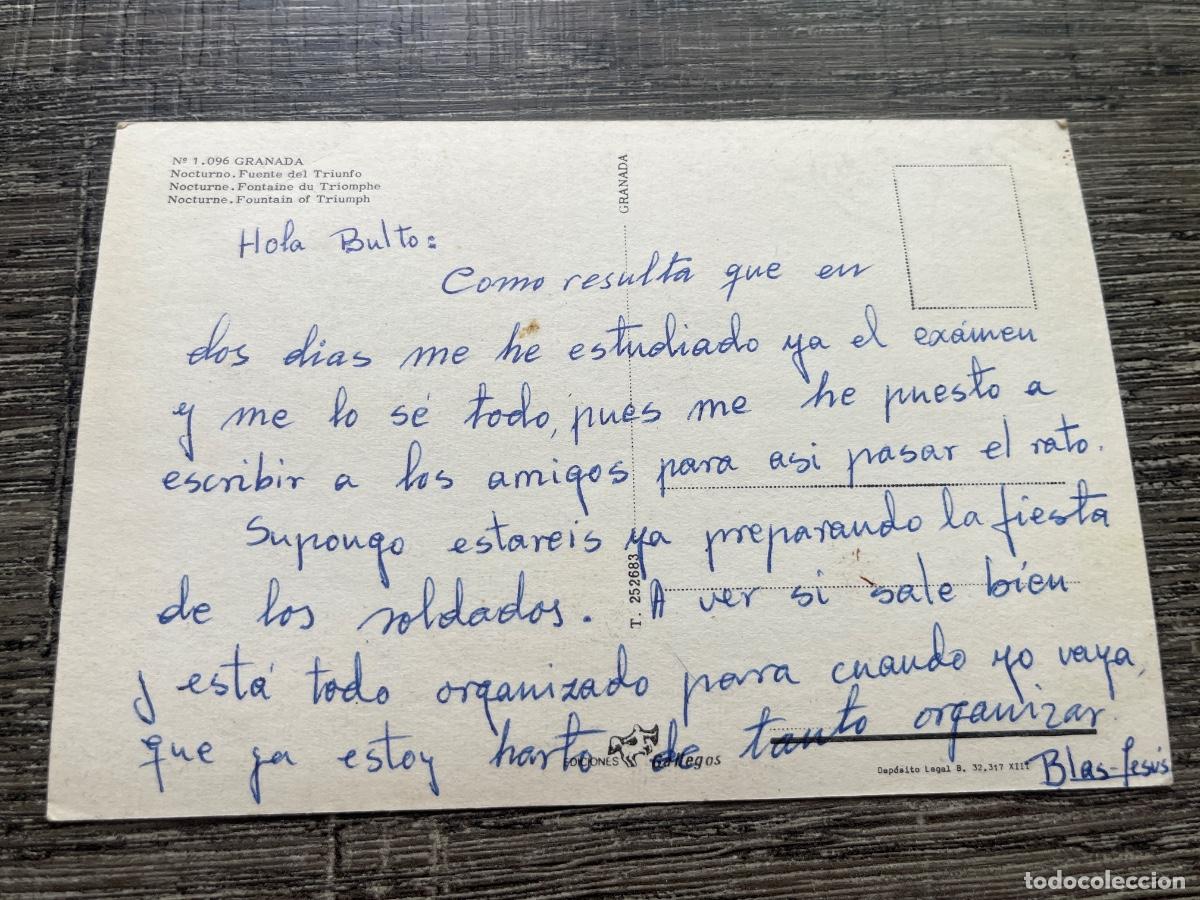 Nº 1.096 GRANADA
Nocturno. Fuente del Triunfo
Nocturne. Fontaine du Triomphe
Nocturne. Fountain of Triumph
GRANADA
Hola Bulto:
Como resulta que en
dos dias me he estudiado ya el exámen
y me lo sé todo, pues me he puesto a
escribir a los amigos para asi pasar el rato.
Supongo estareis ya preparando la fiesta
de los soldados. A ver si sale bien
y está todo organizado para cuando yo vaya,
que ya estoy harto de tanto organizar.
Blas-Jesús
T. 252683
EDICIONES Gallegos
Depósito Legal B. 32.317 XIII
todocoleccion